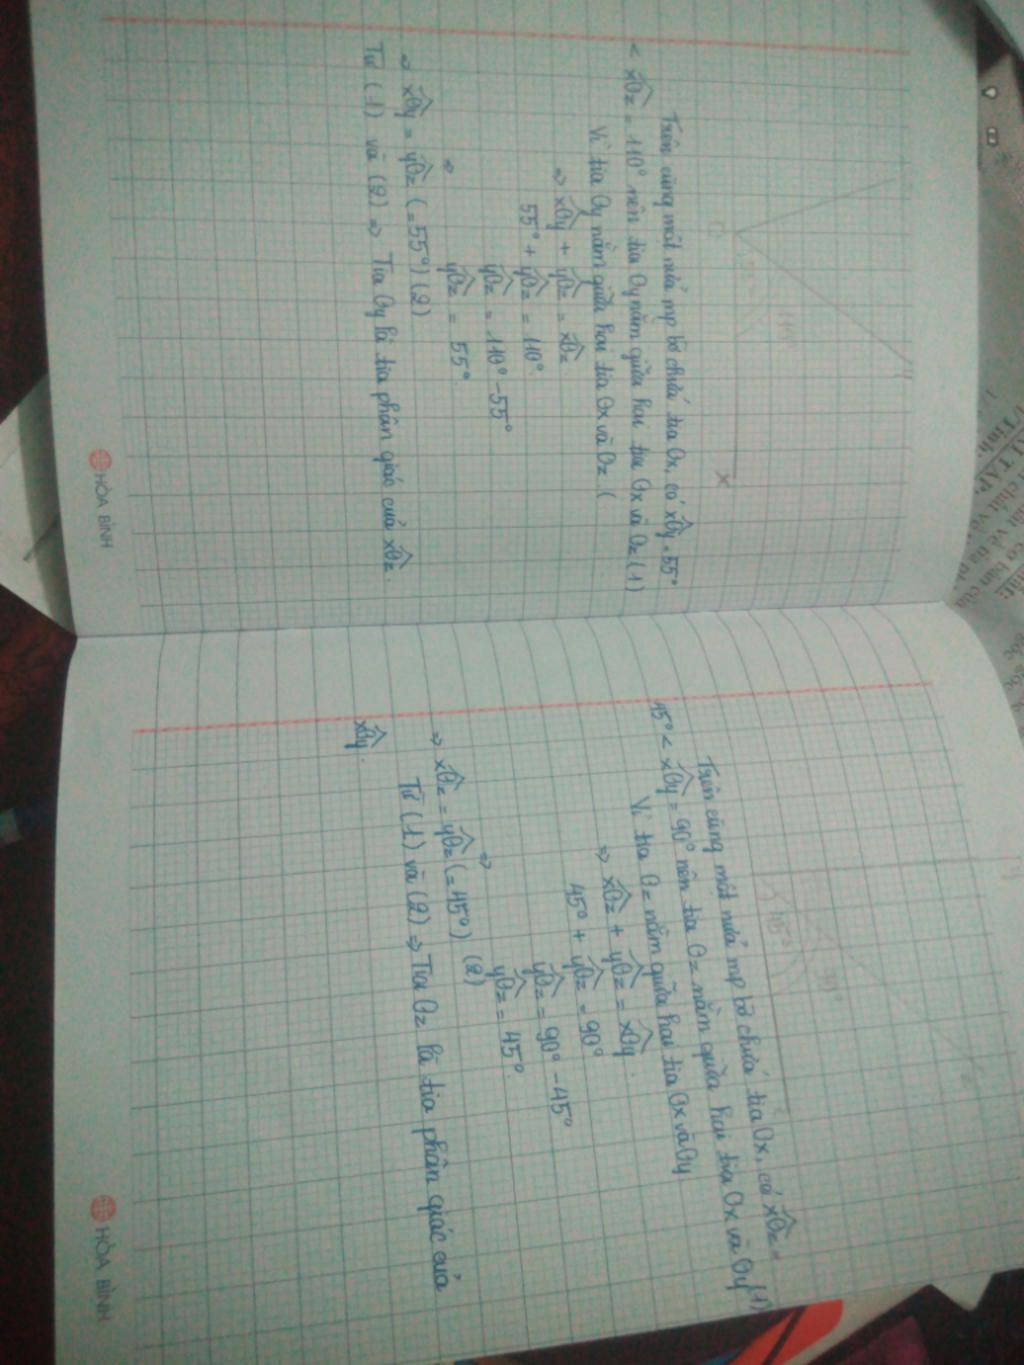 x
110°
Trên cùng một nửa mp bờ chứa tia Ox, có xÔy = 55°
< xÔz = 110° nên tia Oy nằm giữa hai tia Ox và Oz (1)
Vì tia Oy nằm giữa hai tia Ox và Oz (
⇒ xÔy + yÔz = xÔz
55° + yÔz = 110°
yÔz = 110° - 55°
⇒ yÔz = 55°.
⇒ xÔy = yÔz (= 55°) (2)
Từ (1) và (2) ⇒ Tia Oy là tia phân giác của xÔz.
HÒA BÌNH
y
45°
90°
Trên cùng một nửa mp bờ chứa tia Ox, có xÔz =
45° < xÔy = 90° nên tia Oz nằm giữa hai tia Ox và Oy (1)
Vì tia Oz nằm giữa hai tia Ox và Oy
⇒ xÔz + yÔz = xÔy.
45° + yÔz = 90°
yÔz = 90° - 45°
⇒ yÔz = 45°.
⇒ xÔz = yÔz (= 45°) (2)
Từ (1) và (2) ⇒ Tia Oz là tia phân giác của
xÔy.
HÒA BÌNH
BÀI TẬP:
1/
Tính: